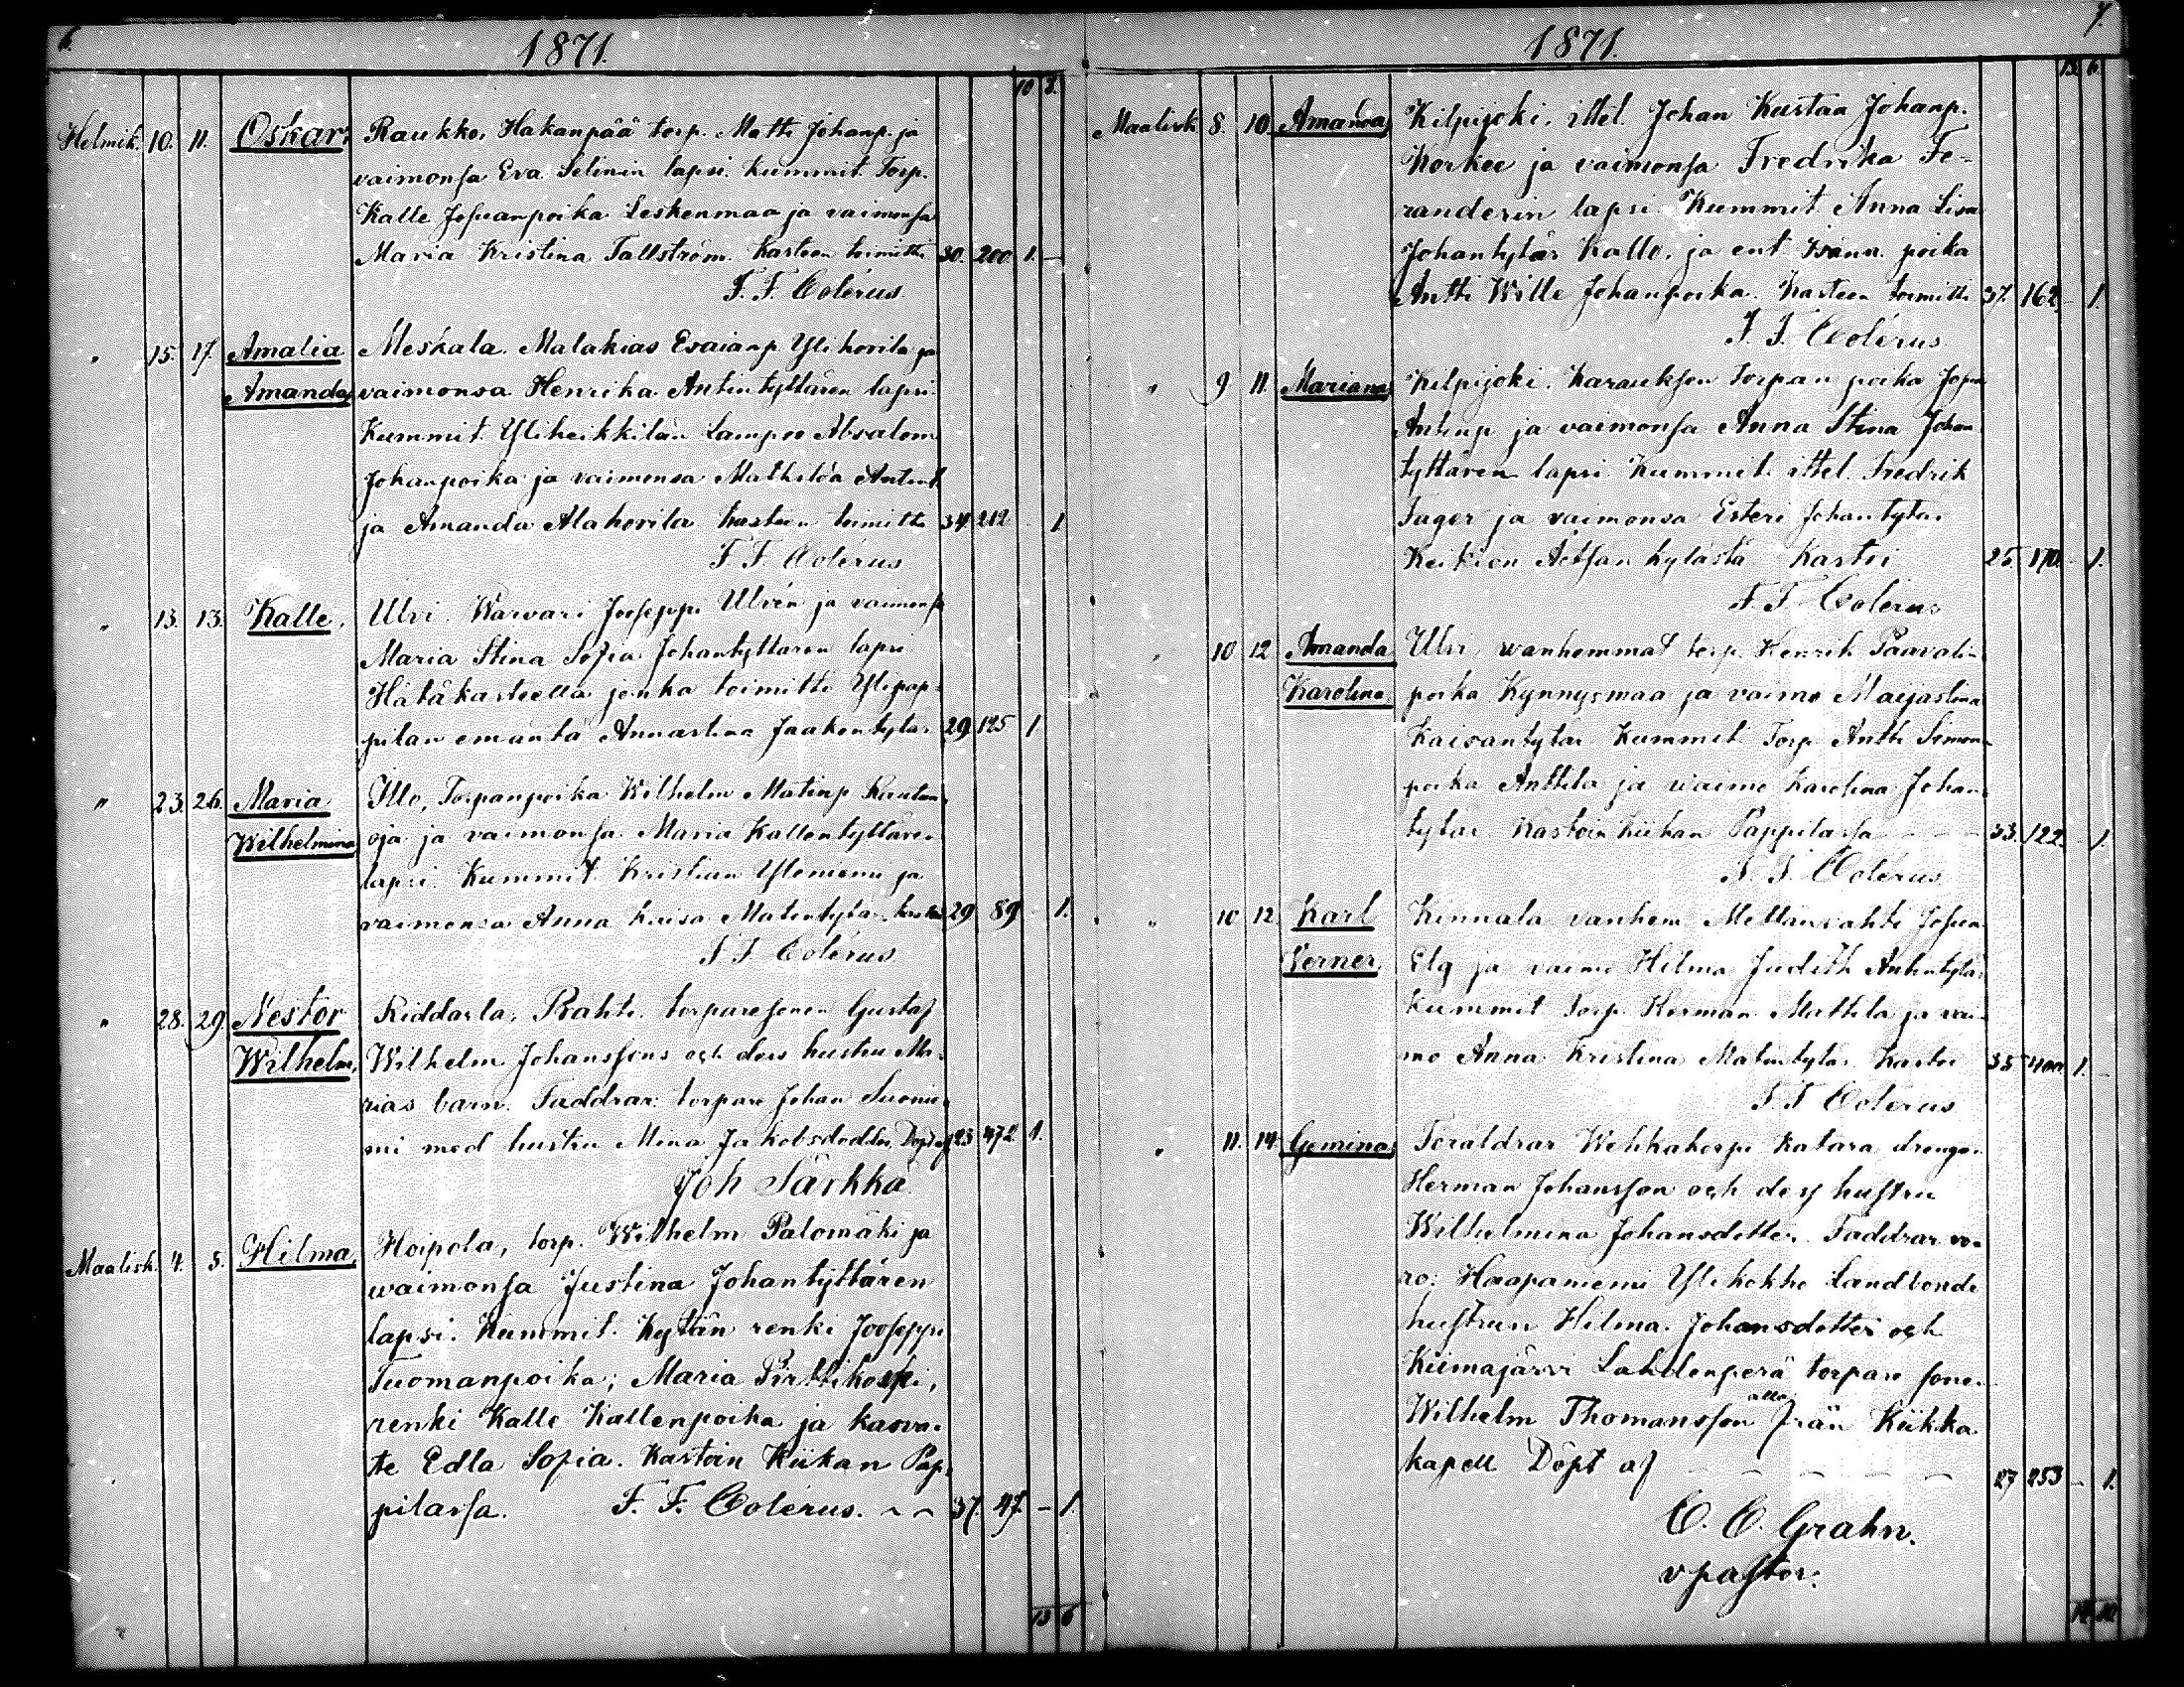 6.
1871.
10 3.
Helmik. 10. 11. Oskar, Raukko, Hakanpää torp. Matti Johanp. ja
vaimonsa Eva Selinin lapsi. Kummit. Torp.
Kalle Josuanpoika Leskenmaa ja vaimonsa
Maria Kristina Tallström. Kasteen toimitti 30. 200. 1. –
F. F. Colérus.
" 15. 17. Amalia Meskala. Malakias Esaianp Ylihovila ja
Amanda, vaimonsa Henrika Antintyttären lapsi.
Kummit. Yliheikkilän Lampo Absalom
Johanpoika ja vaimonsa Mathilda Antint
ja Amanda Alahovila kasteen toimitti 34. 212 1
F. F. Colérus
" 13. 13. Kalle, Ulvi. Warvari Jooseppi Ulvén ja vaimonsa
Maria Stina Sofia Johantyttären lapsi
Hätäkasteella jonka toimitti Ylipap-
pilan emäntä Annastina Jaakontytär 29. 125 1
" 23. 26. Maria Illo, Torpanpoika Wilhelm Matinp Rautan
Wilhelmina oja ja vaimonsa Maria Kallentyttären
lapsi. Kummit. Kristian Yliniemi ja
vaimonsa Anna Kaisa Matintytär 29 89 – 1.
F. F. Colérus
" 28. 29. Nestor Riddarla, Rahti. torparesonen Gustaf
Wilhelm, Wilhelm Johanssons och dess hustru Ma-
rias barn. Faddrar: torpare Johan Suonie-
mi med hustru Mina Jakobsdodder, Döpt af 23 472. 1.
Joh Särkkä
Maalisk. 4. 5. Hilma, Hoipola, torp. Wilhelm Palomäki ja
waimonsa Justina Johantyttären
lapsi. Kummit. Kytän renki Jooseppi
Tuomanpoika; Maria Pirttikoski,
renki Kalle Kallenpoika ja kasva-
te Edla Sofia. Kastoin Kiikan Pap-
pilassa. F. F. Colérus. 37. 47. – 1.
13 6
7.
1871.
13. 6.
Maalisk. 8. 10. Amanda, Kilpijoki, ittel. Johan Kustaa Johanp.
Korkee ja vaimonsa Fredrika Fe-
randerin lapsi. Kummit Anna Lisa
Johantytär Kallo, ja ent. Isänn. poika
Antti Wille Johanpoika. Kasteen toimitti 37. 162 – 1.
F. F. Colérus
" 9 11. Mariana, Kilpijoki. Karauksen Torpan poika Josua
Antinp ja vaimonsa Anna Stina Johan
tyttären lapsi Kummit. ittel. Fredrik
Fager ja vaimonsa Esteri Johantytär
Keikien Aetsan kylästä Kastoi 25. 170. – 1.
F. F. Colérus
" 10 12 Amanda Ulvi, wanhemmat torp. Henrik Paavalin
Karolina, poika Kynnysmaa ja vaimo Maijastina
Kaisantytär Kummit Torp Antti Simon-
poika Anttila ja waimo Karolina Johan-
tytär Kastoin Kiikan Pappilassa 33. 122. – 1.
F. F. Colérus
" 10 12. Karl Kinnala vanhem. Mettänvahti Josua
Verner, Elg ja vaimo Hilma Judith Antintytär
Kummit Torp. Herman Mattila ja vai-
mo Anna Kristina Matintytär Kastoi 35 400. 1.
F. F. Colérus
" 11. 14. Gemina, Föräldrar Wehkakorpi Katara drengen
Herman Johansson och dess hustru
Wilhelmina Johansdotter. Faddrar vo-
ro: Haapaniemi Ylikokko Landbonde
hustrun Hilma Johansdotter och
Kiimajärvi Lahdenperä torpare sonen
Wilhelm Thomansson alla från Kiikka
kapell Döpt af 27 253 – 1.
C. C. Grahn.
v pastor.